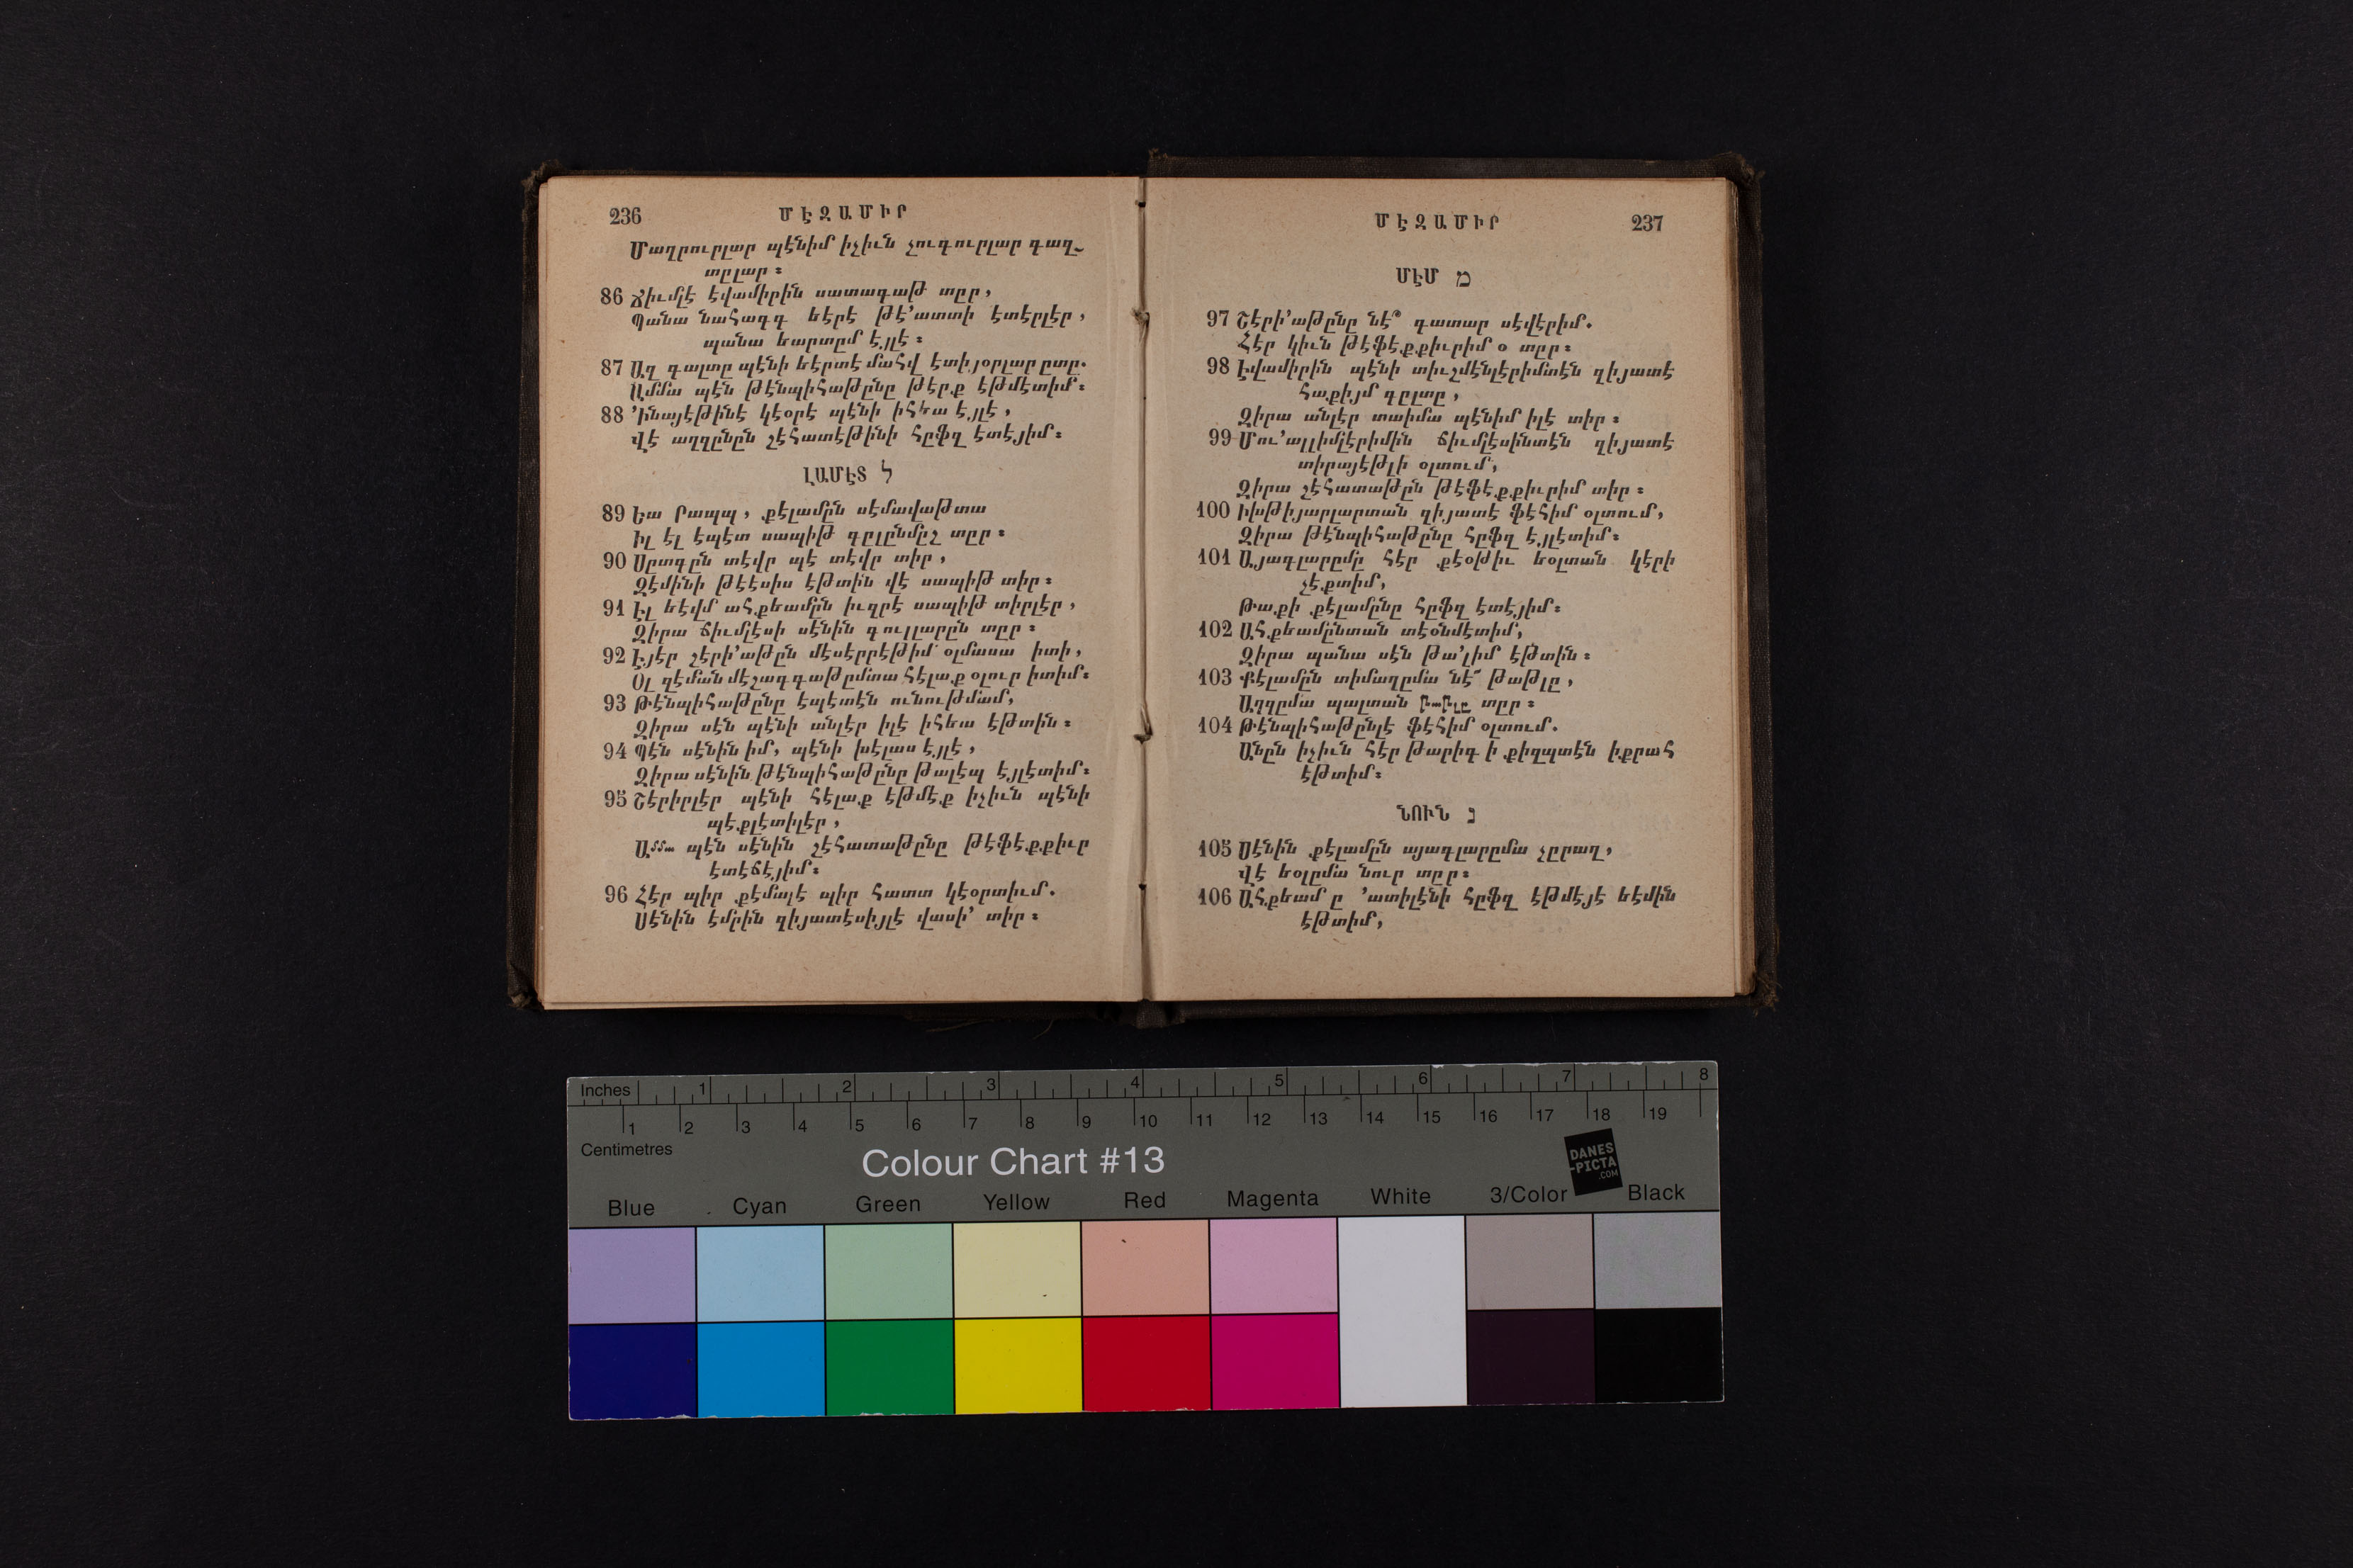 236 ՄԷԶԱՄԻՐ
Մաղրուրլար պէնիմ իչիւն չուգուրլար գաղ֊
տըլար։
86 Ճիւմլէ էվամիրին սատագաթ տըր,
Պանա նահագգ եէրէ թէ՚ատտի էտէրլէր,
պանա եարտըմ էյլէ։
87 Ազ գալտը պէնի եէրտէ մահվ էտիյօրլար ըտը.
Ամմա պէն թէնպիհաթընը թէրք էթմէտիմ։
88 ՚Ինայէթինէ կէօրէ պէնի իհեա էյլէ,
Վէ աղզընըն շէհատէթինի հըֆզ էտէյիմ։
ԼԱՄԷՏ ל
89 Եա Րապպ, քէլամըն սէմավաթտա
Իլ էլ էպէտ սապիթ գըլընմըշ տըր։
90 Սըտգըն տէվր պէ տէվր տիր,
Զէմինի թէէսիս էթտին վէ սապիթ տիր։
91 Էլ եէվմ ահքեամըն իւզրէ սապիթ տիրլէր,
Զիրա ճիւմլէսի սէնին գուլլարըն տըր։
92 Էյէր շէրի՚աթըն մէսէրրէթիմ օլմասա իտի,
Օլ զէման մէշագգաթըմտա հէլաք օլուր իտիմ։
93 Թէնպիհաթընը էպէտէն ունութմամ,
Զիրա սէն պէնի անլէր իլէ իհեա էթտին։
94 Պէն սէնին իմ, պէնի խէլաս էյլէ,
Զիրա սէնին թէնպիհաթընը թալէպ էյլէտիմ։
95 Շէրիրլէր պէնի հէլաք էթմէք իչիւն պէնի
պէքլէտիլէր,
Ամմա պէն սէնին շէհատաթընը թէֆէքքիւր
էտէճէյիմ։
96 Հէր պիր քէմալէ պիր հատտ կէօրտիւմ.
Սէնին էմրին զիյատէսիյլէ վասի՚ տիր։
ՄԷԶԱՄԻՐ 237
ՄԷՄ מ
97 Շէրի՚աթընը նէ՞ գատար սէվէրիմ.
Հէր կիւն թէֆէքքիւրիմ օ տըր։
98 Էվամիրին պէնի տիւշմէնլէրիմտէն զիյատէ
հաքիյմ գըլտը,
Զիրա անլէր տաիմա պէնիմ իլէ տիր։
99 Մու՚ալլիմլէրիմին ճիւմլէսինտէն զիյատէ
տիրայէթլի օլտում,
Զիրա շէհատաթըն թէֆէքքիւրիմ տիր։
100 Իխթիյարլարտան զիյատէ ֆէհիմ օլտում,
Զիրա թէնպիհաթընը հըֆզ էյլէտիմ։
101 Այագլարըմը հէր քէօթիւ եօլտան կէրի
չէքտիմ,
Թաքի քէլամընը հըֆզ էտէյիմ։
102 Ահքեամընտան տէօնմէտիմ,
Զիրա պանա սէն թա՚լիմ էթտին։
103 Քէլամըն տիմաղըմա նէ՜ թաթլը,
Աղզըմա պալտան թաթլը տըր։
104 Թէնպիհաթընլէ ֆէհիմ օլտում.
Անըն իչիւն հէր թարիգ ի քիզպտէն իքրահ
էթտիմ։
ՆՈՒՆ נ
105 Սէնին քէլամըն այագլարըմա չըրաղ,
Վէ եօլըմա նուր տըր։
106 Ահքեամ ը ՚ատիլէնի հըֆզ էթմէյէ եէմին
էթտիմ,
Inches 1 2 3 4 5 6 7 8
1 2 3 4 5 6 7 8 9 10 11 12 13 14 15 16 17 18 19
Centimetres
Colour Chart #13
DANES
-PICTA
.COM
Blue Cyan Green Yellow Red Magenta White 3/Color Black